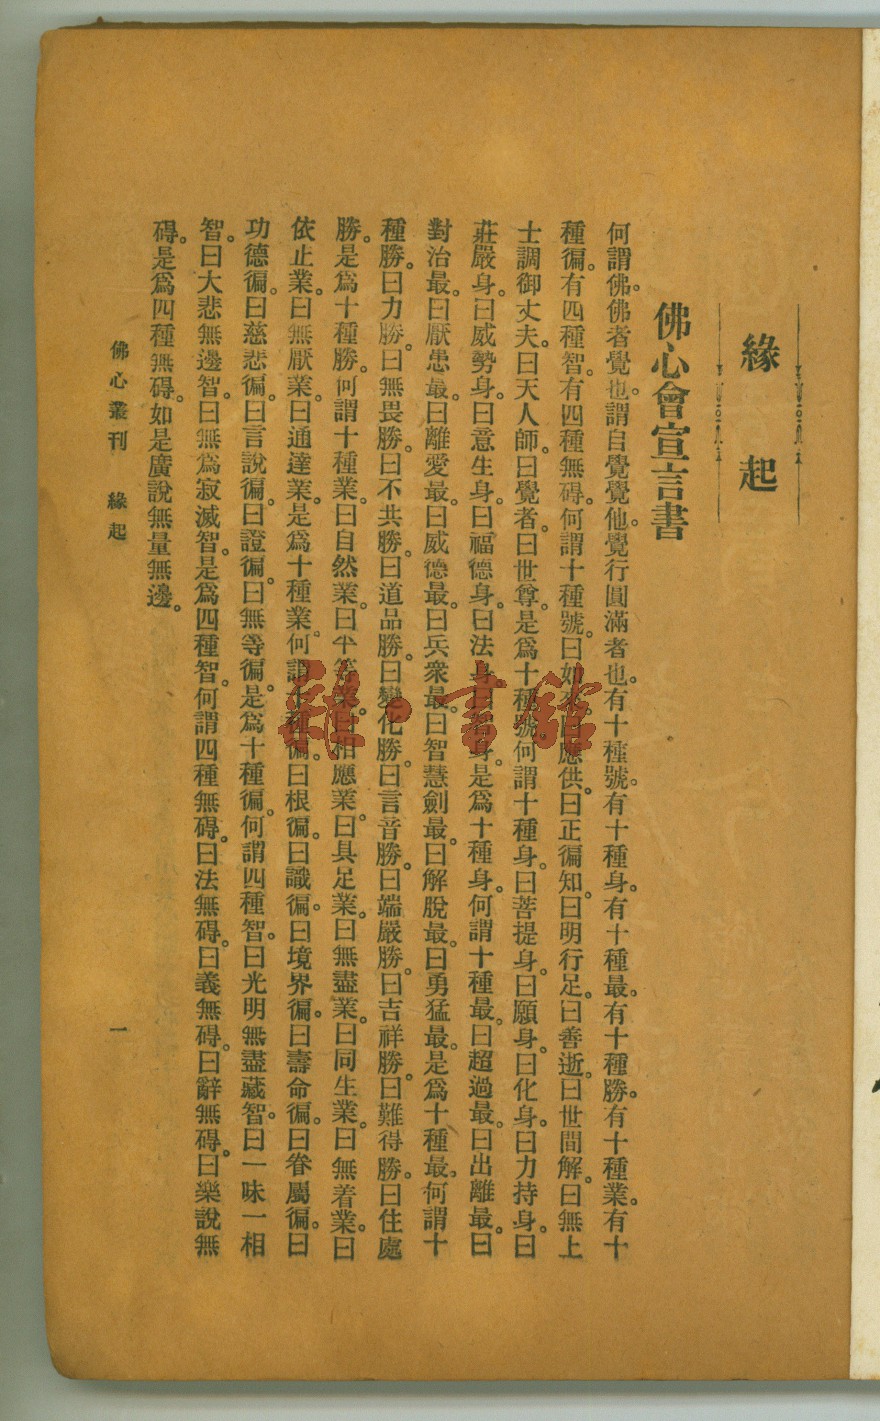 緣起
佛心會宣言書
何謂佛。佛者覺也。謂自覺覺他。覺行圓滿者也。有十種號。有十種身。有十種最。有十種勝。有十種業。有十
種徧。有四種智。有四種無碍。何謂十種號。曰如來。曰應供。曰正徧知。曰明行足。曰善逝。曰世間解。曰無上
士調御丈夫。曰天人師。曰覺者。曰世尊。是爲十種號。何謂十種身。曰菩提身。曰願身。曰化身。曰力持身。曰
莊嚴身。曰威勢身。曰意生身。曰福德身。曰法身。曰智身。是爲十種身。何謂十種最。曰超過最。曰出離最。曰
對治最。曰厭患最。曰離愛最。曰威德最。曰兵衆最。曰智慧劍最。曰解脫最。曰勇猛最。是爲十種最。何謂十
種勝。曰力勝。曰無畏勝。曰不共勝。曰道品勝。曰變化勝。曰言音勝。曰端嚴勝。曰吉祥勝。曰難得勝。曰住處
勝。是爲十種勝。何謂十種業。曰自然業。曰平等業。曰相應業。曰具足業。曰無盡業。曰同生業。曰無着業。曰
依止業。曰無厭業。曰通達業。是爲十種業。何謂十種徧。曰根徧。曰識徧。曰境界徧。曰壽命徧。曰眷屬徧。曰
功德徧。曰慈悲徧。曰言說徧。曰證徧。曰無等徧。是爲十種徧。何謂四種智。曰光明無盡藏智。曰一味一相
智。曰大悲無邊智。曰無爲寂滅智。是爲四種智。何謂四種無碍。曰法無碍。曰義無碍。曰辭無碍。曰樂說無
碍。是爲四種無碍。如是廣說無量無邊。
佛心叢刊 緣起
一
雜·書館